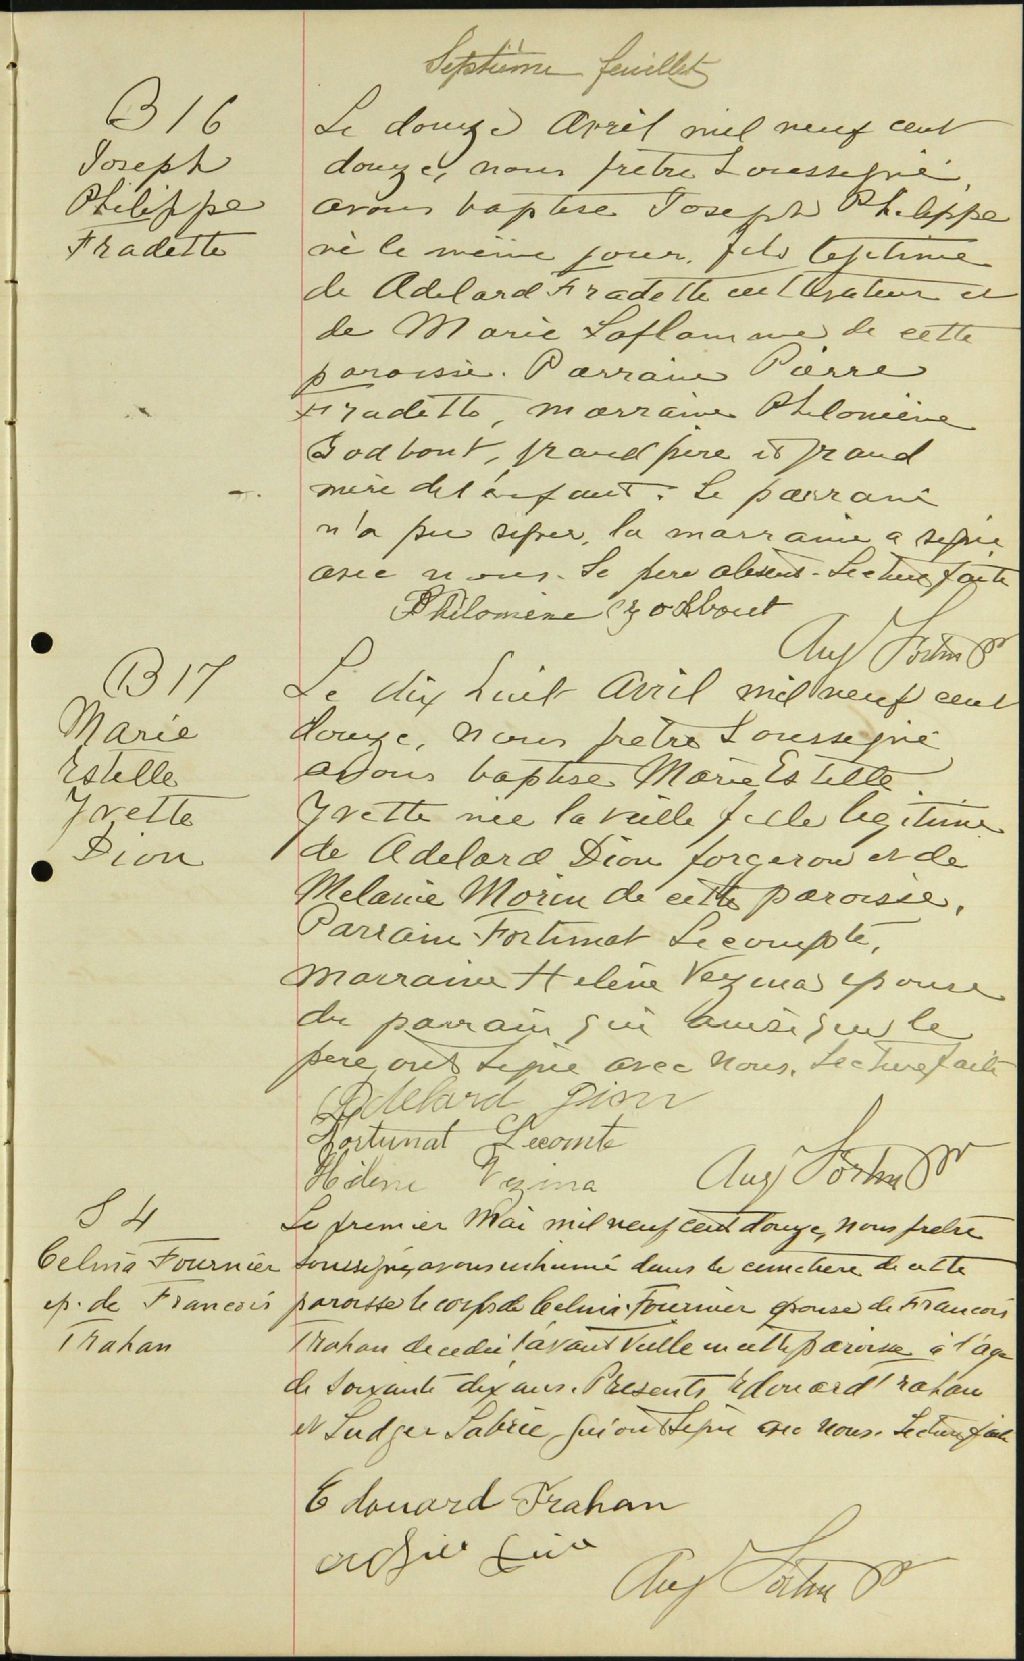 Septième feuillet
B 16
Joseph
Philippe
Fradette
Le douze Avril mil neuf cent
douze, nous prêtre soussigné,
avons baptisé Joseph Philippe
né le même jour, fils légitime
de Adelard Fradette cultivateur et
de Marie Laflamme de cette
paroisse. Parrain Pierre
Fradette, marraine Philomène
Godbout, grand père et grand
mère de l'enfant. Le parrain
n'a pu signer, la marraine a signé
avec nous. Le père absent. Lecture faite
Philomène Godbout
Aug Fortin Ptr
B 17
Marie
Estelle
Yvette
Dion
Le dix huit Avril mil neuf cent
douze, nous prêtre soussigné
avons baptisé Marie Estelle
Yvette née la veille fille légitime
de Adelard Dion forgeron et de
Melanie Morin de cette paroisse.
Parrain Fortunat Lecompte,
marraine Helène Vezina épouse
du parrain qui ainsi que le
père ont signé avec nous. Lecture faite
Adelard Dion
Fortunat Lecomte
Hélène Vezina
Aug Fortin Ptr
S 4
Celina Fournier
ép. de Francois
Trahan
Le premier Mai mil neuf cent douze, nous prêtre
soussigné, avons inhumé dans le cimetière de cette
paroisse le corps de Celina Fournier épouse de Francois
Trahan decedée l'avant veille en cette paroisse à l'age
de soixante dix ans. Présents Edouard Trahan
et Ludger Labrie qui ont signé avec nous. Lecture faite
Edouard Trahan
Aug Fortin Ptr